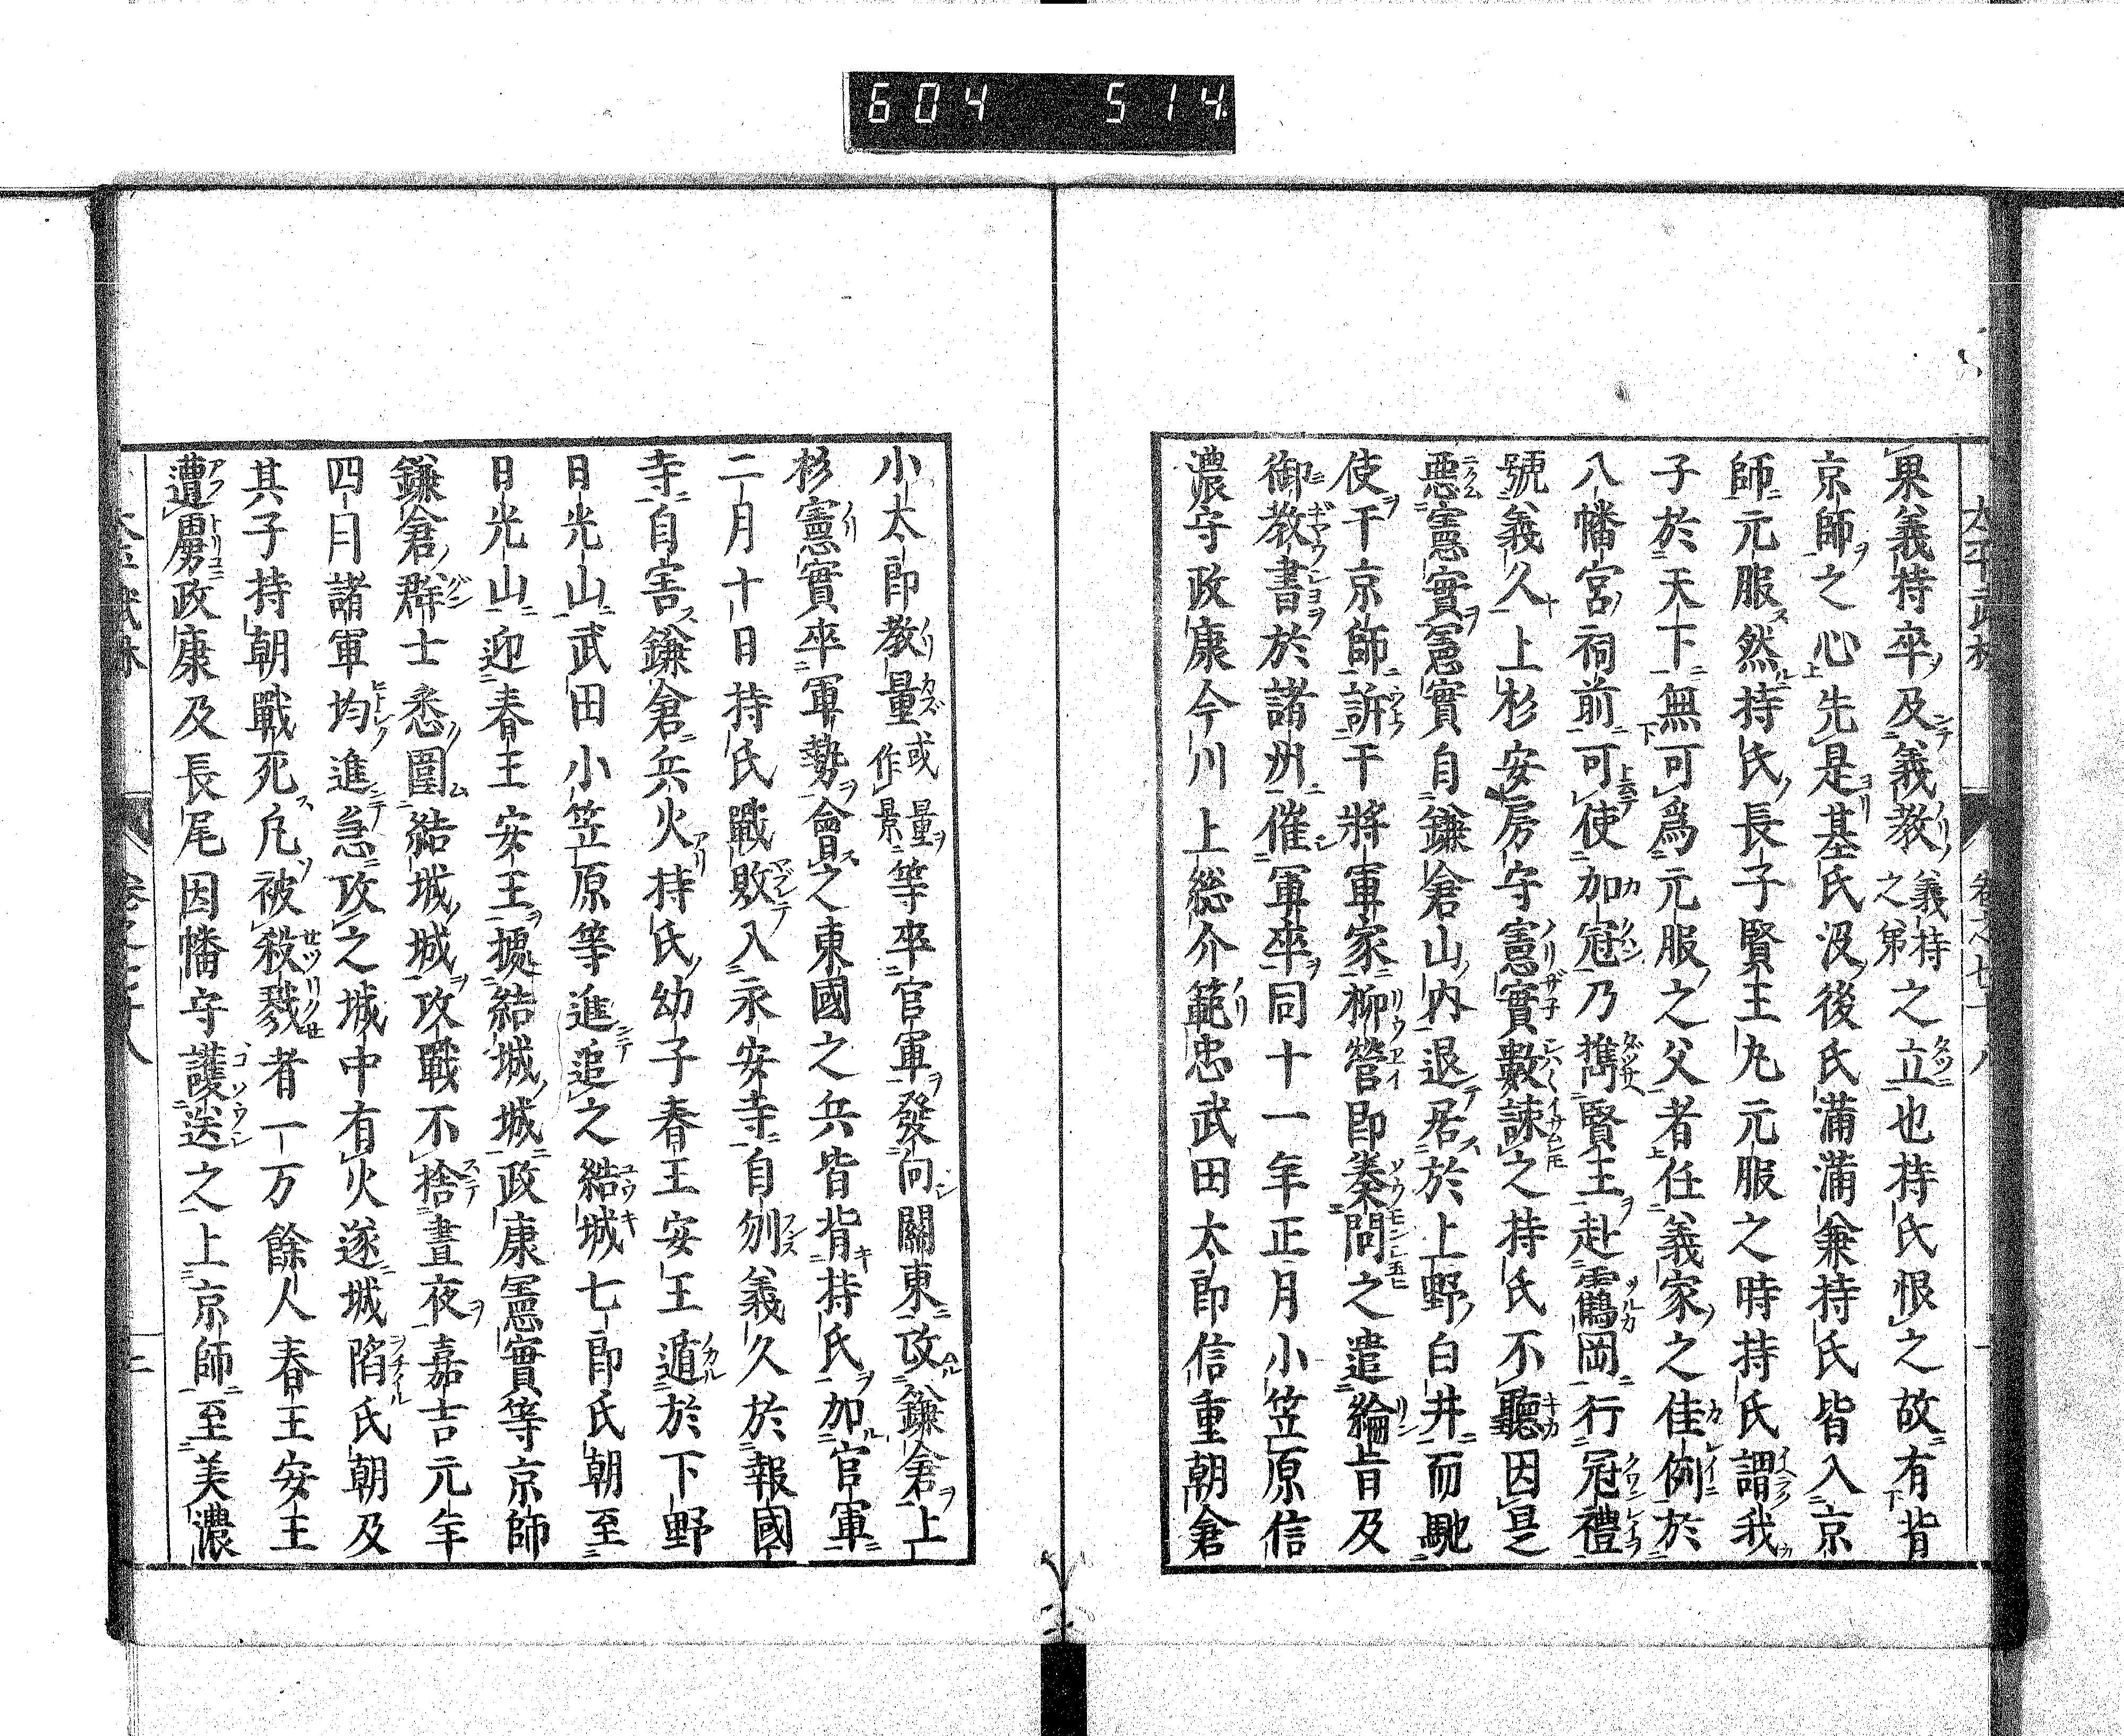 604 514
果義持卒及義教義持之弟之立也持氏恨之故有背
京師之心先是基氏汲後氏滿滿兼持氏皆入京
師元服然持氏長子賢王丸元服之時持氏謂我
子於天下無可爲元服之父者任義家之佳例於
八幡宮祠前可使加冠乃携賢王赴鶴岡行冠禮
號義久上杉安房守憲實數諫之持氏不聽因是
惡憲實憲實自鎌倉山内退居於上野白井而馳
使于京師訴于將軍家柳營即奏問之遣綸旨及
御教書於諸州催軍卒同十一年正月小笠原信
濃守政康今川上総介範忠武田太郎信重朝倉
小太郎教量或量作景等卒官軍發向關東攻鎌倉上
杉憲實卒軍勢會之東國之兵皆背持氏加官軍
二月十日持氏戰敗入永安寺自刎義久於報國
寺自害鎌倉兵火持氏幼子春王安王遁於下野
日光山武田小笠原等進追之結城七郎氏朝至
日光山迎春王安王據結城城政康憲實等京師
鎌倉群士悉圍結城城攻戰不捨晝夜嘉吉元年
四月諸軍均進急攻之城中有火遂城陷氏朝及
其子持朝戰死凡被殺戮者一万餘人春王安王
遭虜政康及長尾因幡守護送之上京師至美濃